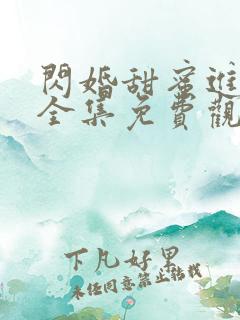 閃婚甜蜜進
全集免費觀
下凡好果
未经同意禁止转载